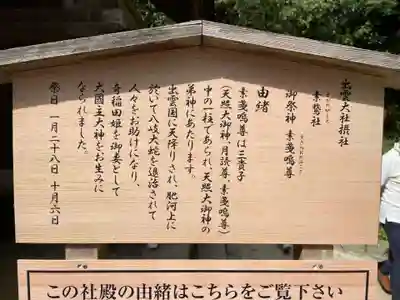 出雲大社摂社
素鵞社
御祭神 素戔嗚尊
由緒
素戔嗚尊は三貴子
(天照大御神 月読尊 素戔嗚尊)
中の一柱であられ、天照大御神の
弟神にあたります。
出雲国に天降りされ、肥河上に
於いて八岐大蛇を退治されて
人々をお助けになり、
奇稲田姫を御妻として
大國主大神をお生みに
なられました。
祭日 一月二十八日 十月六日
この社殿の由緒はこちらをご覧下さい